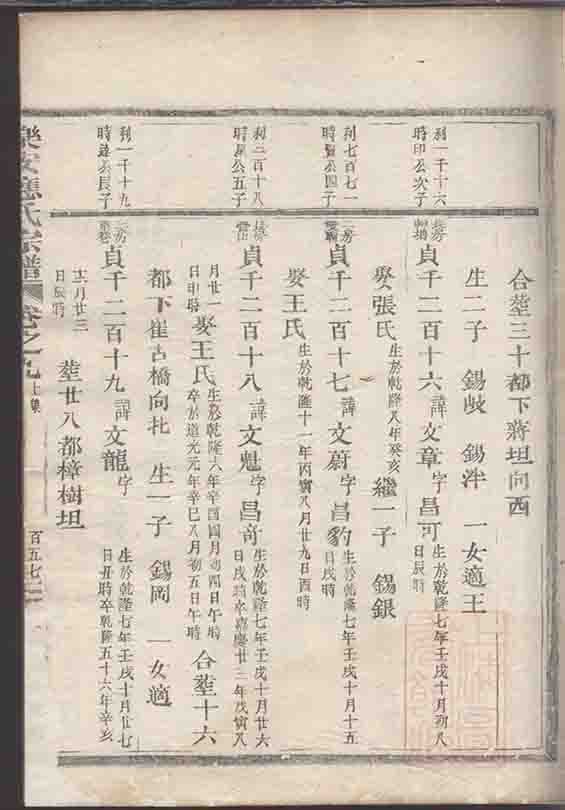 合塟三十都下蔣坦向西
生二子 錫岐 錫泮 一女適王
利一千十六
時印公次子
貞千二百十六諱文章字昌可
生於乾隆七年壬戌十月初八
日辰時
娶張氏生於乾隆八年癸亥 繼一子 錫銀
利七百七一
時賢公四子
二房
貞千二百十七諱文蔚字昌豹
生於乾隆七年壬戌十月十五
日戌時
娶王氏生於乾隆十一年丙寅八月廿九日酉時
利二百十八
公五子
貞千二百十八諱文魁字昌奇
生於乾隆七年壬戌十月廿六
日戌時卒嘉慶廿三年戊寅八
月廿一
日申時
娶王氏
生於乾隆六年辛酉四月初四日午時
卒於道光元年辛巳八月初五日午時
合塟十六
都下崔古橋向北 生一子 錫岡 一女適
利一千十九
時逵公長子
二房
貞千二百十九諱文龍字
生於乾隆七年壬戌十月廿七
日丑時卒乾隆五十六年辛亥
十二月廿三
日辰時
塟廿八都樟樹坦
樂安應氏宗譜 卷之九上集 百五七